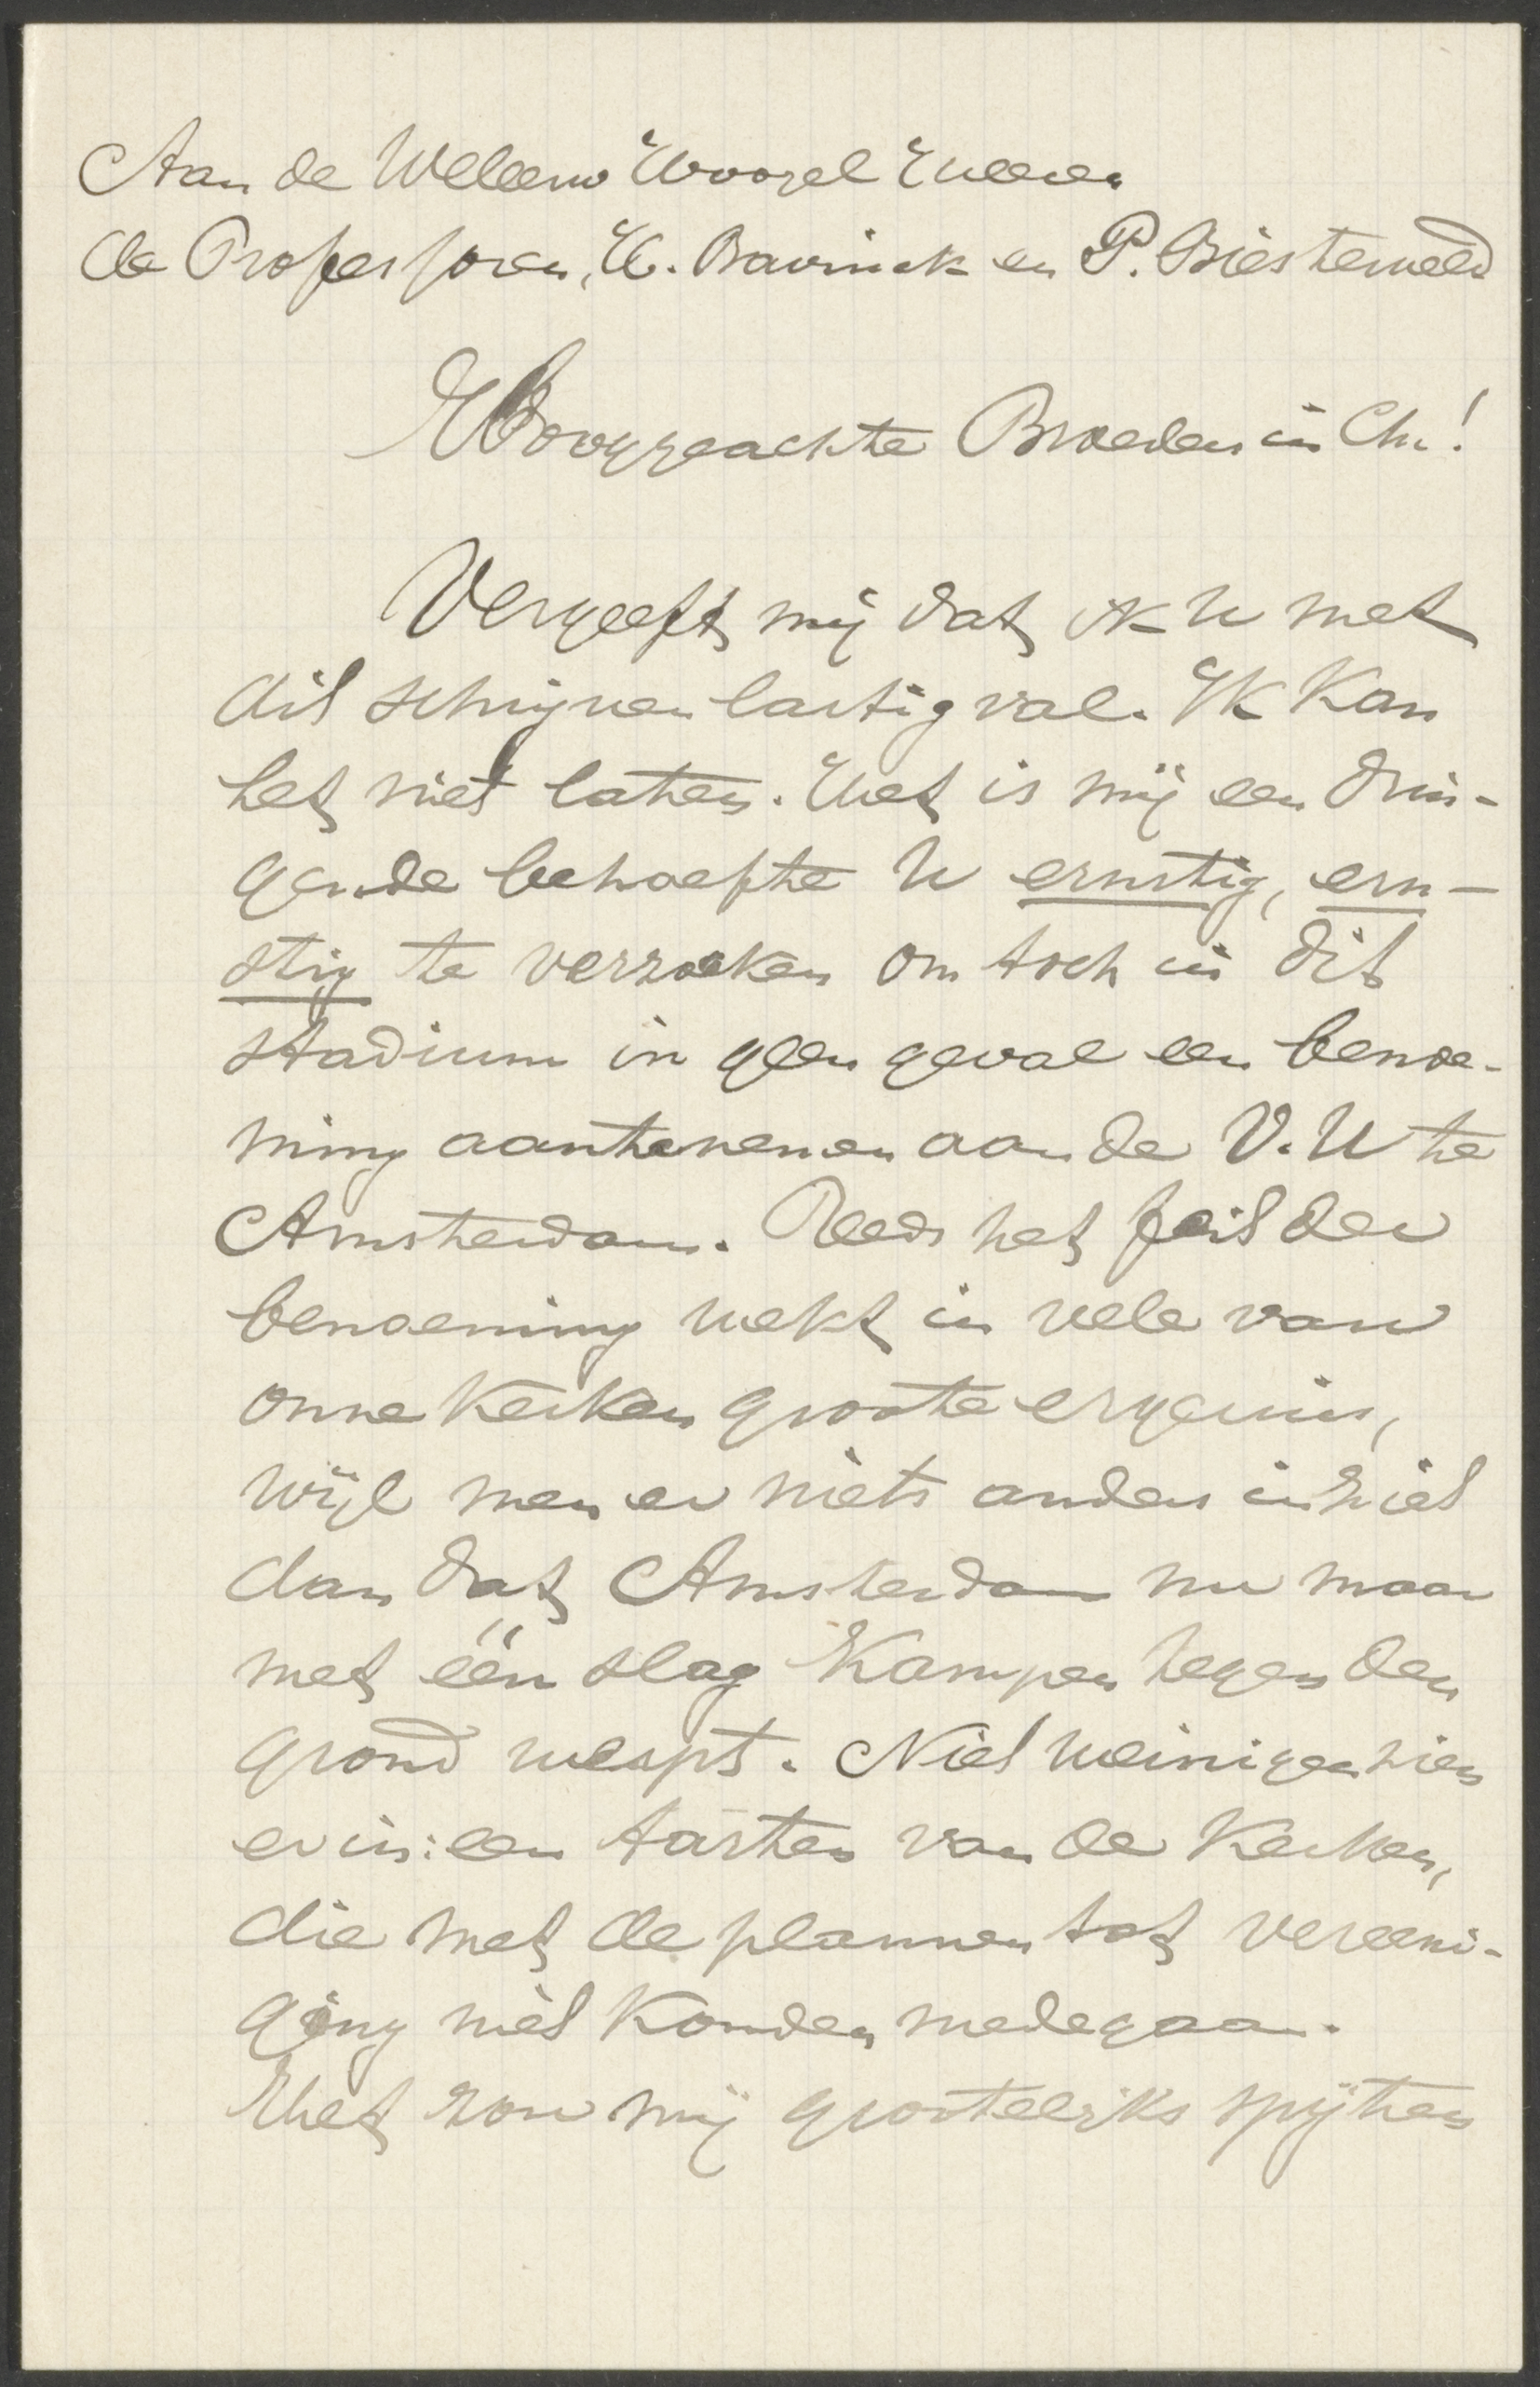 Aan de Weleerw Hoogel Heeren
de Professoren, H. Bavinck en P. Biesterveld
Hooggeachte Broeders in Chr!
Vergeeft mij dat ik U met
dit schrijven lastig val. Ik kan
het niet laten. Het is mij een drin-
gende behoefte U ernstig, ern-
stig te verzoeken om toch in dit
stadium in geen geval een benoe-
ming aantenemen aan de V.U te
Amsterdam. Reeds het feit der
benoeming wekt in vele van
onze kerken groote ergernis,
wijl men er niets anders in ziet
dan dat Amsterdam nu maar
met één slag Kampen tegen den
grond werpt. Niet weinigen zien
er in: een tarten van de Kerken,
die met de plannen tot vereeni-
ging niet konden medegaan.
Het zou mij grooteliks spijten